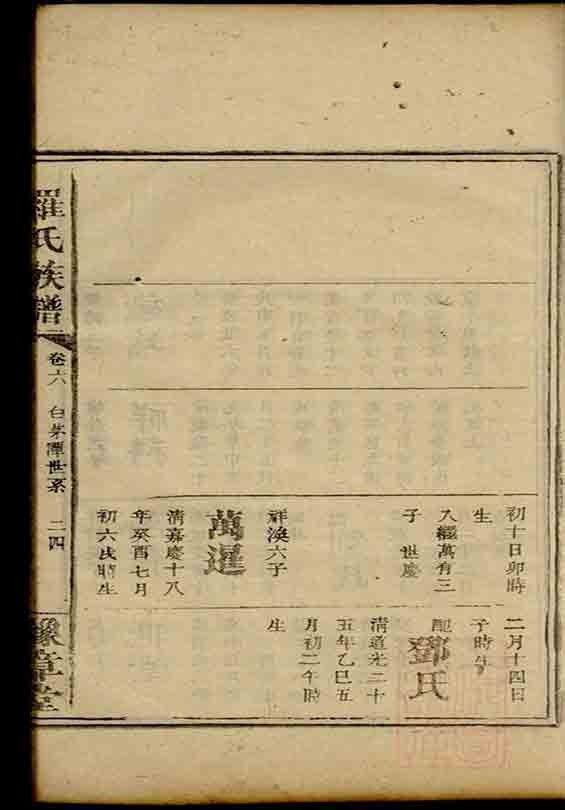 初十日卯時
生
入繼萬有三
子　世慶
祥渙六子
萬暹
清嘉慶十八
年癸酉七月
初六戌時生
二月十四日
子時生
配鄧氏
清道光二十
五年乙巳五
月初二午時
生
羅氏族譜
卷六　白茅潭世系　二四
豫章堂